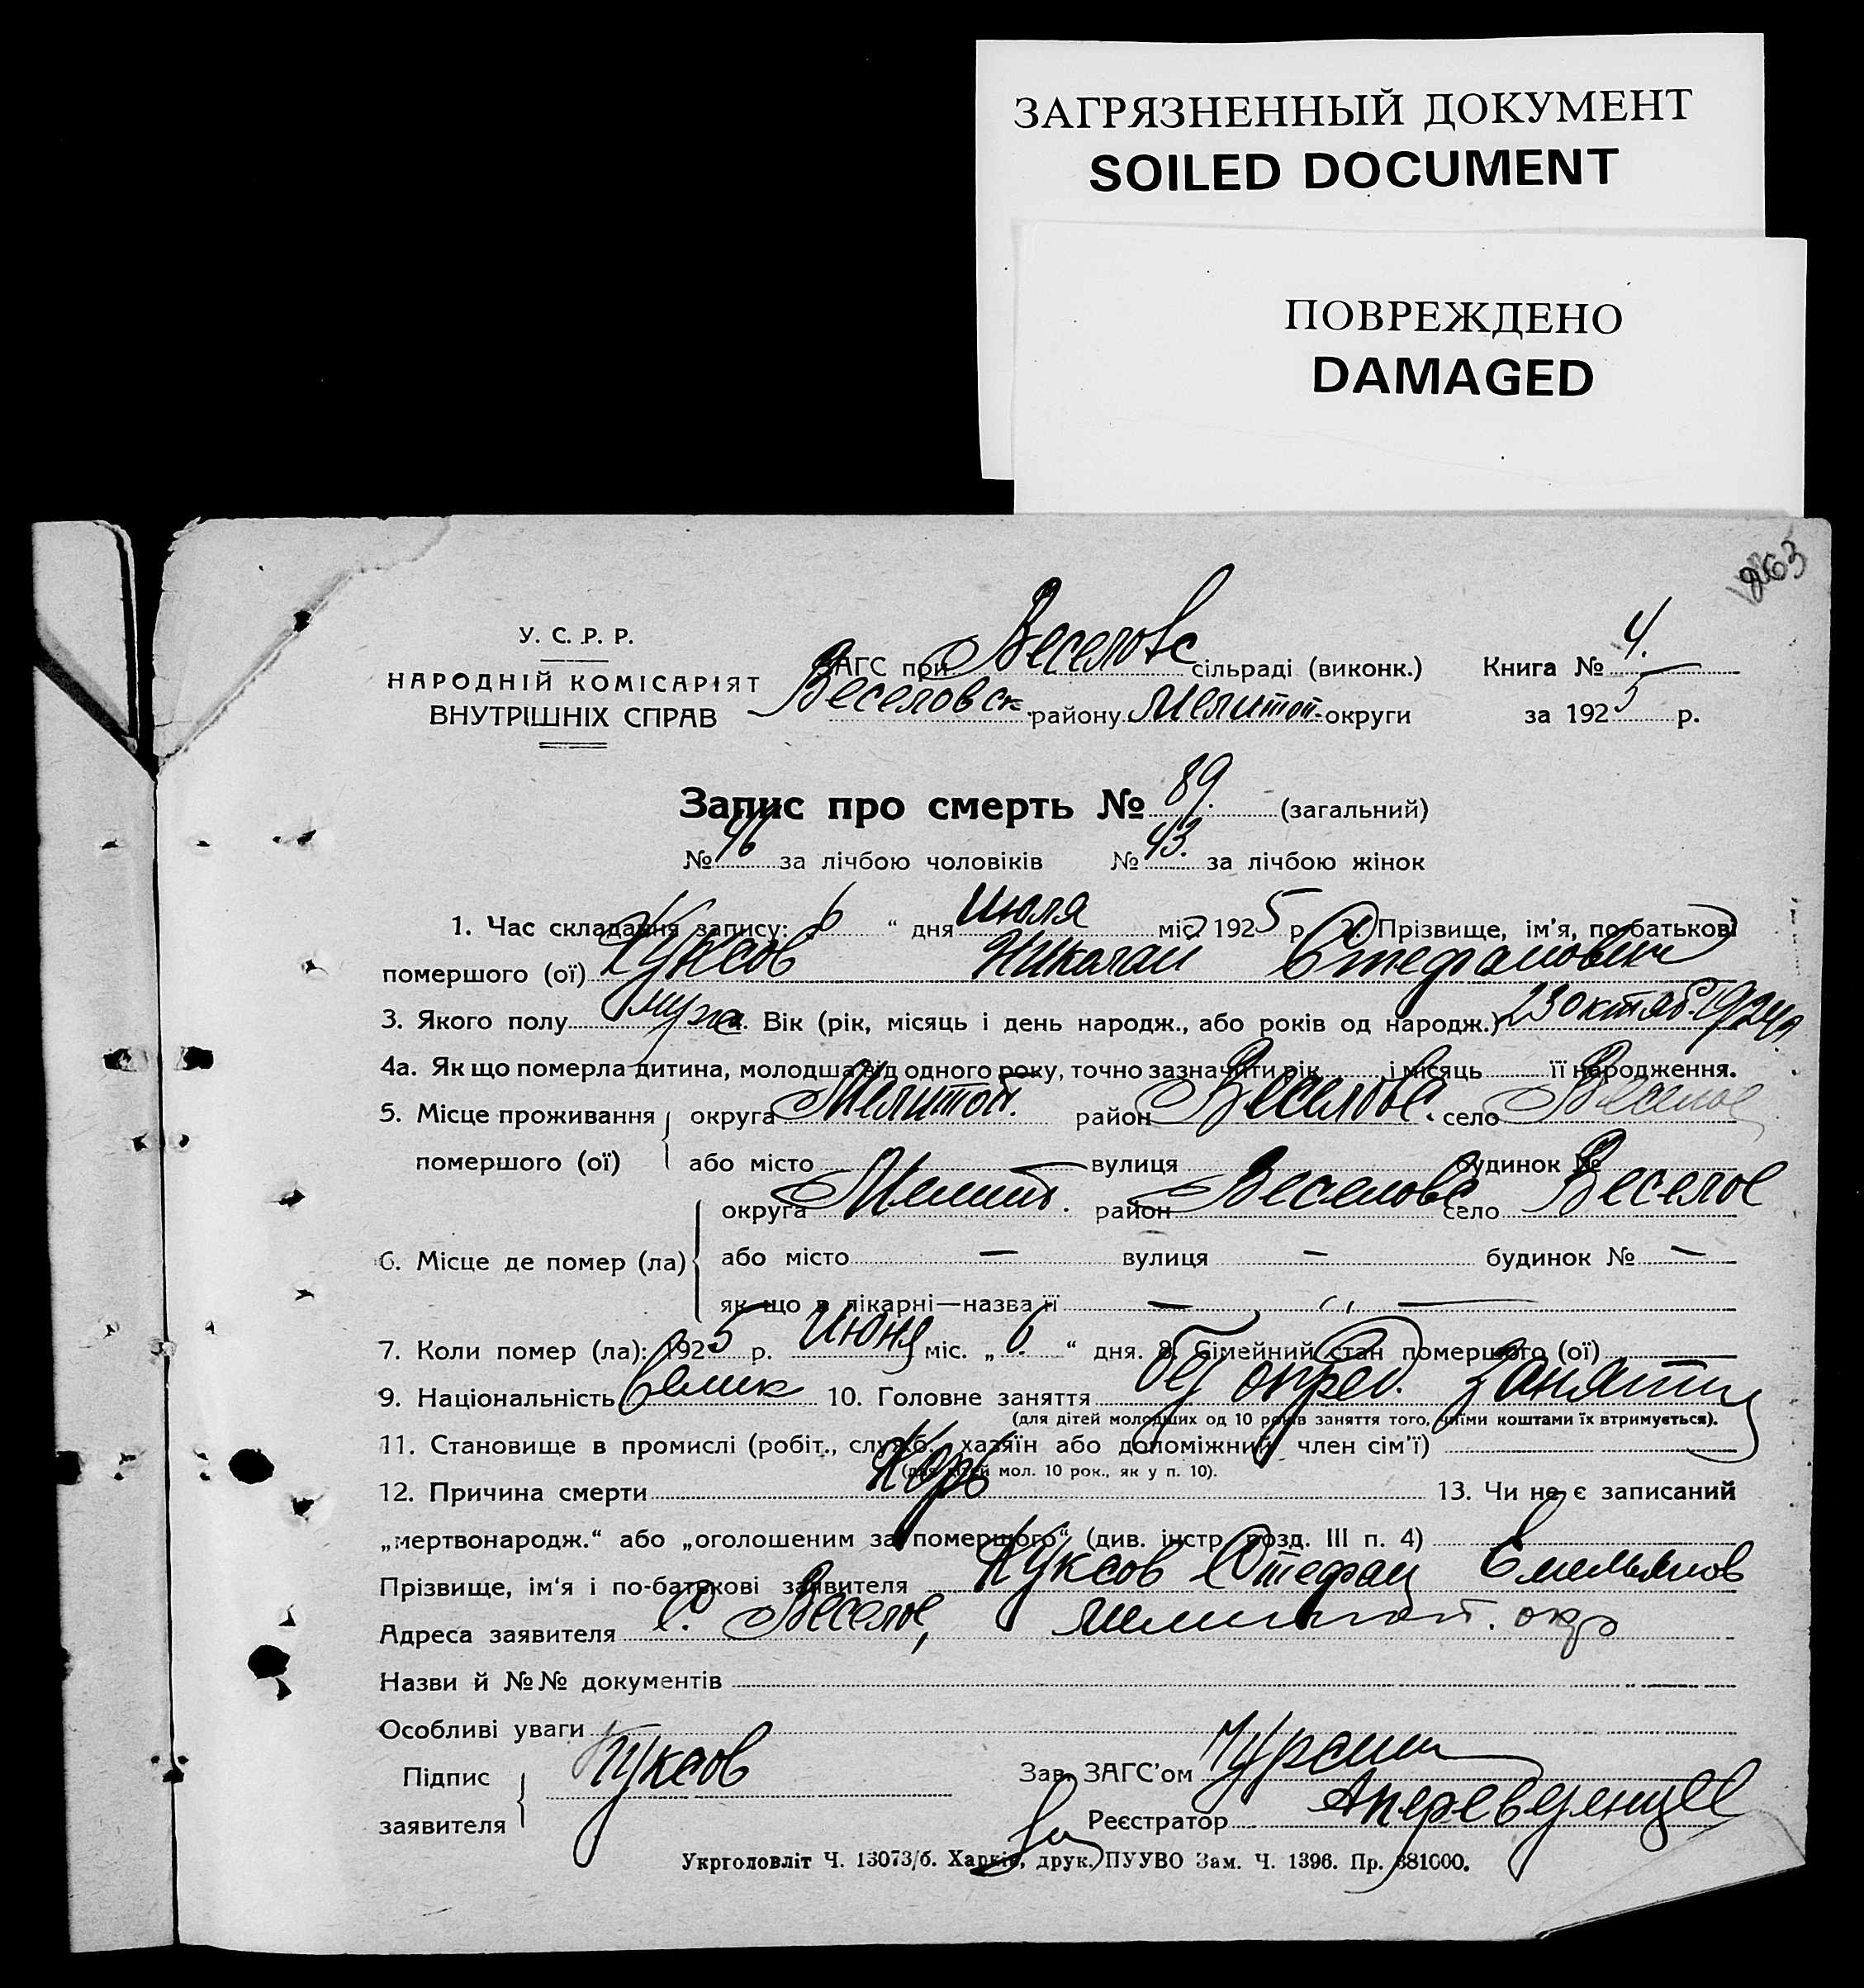 ЗАГРЯЗНЕННЫЙ ДОКУМЕНТ
SOILED DOCUMENT
ПОВРЕЖДЕНО
DAMAGED
У. С. Р. Р.
НАРОДНІЙ КОМІСАРІЯТ
ВНУТРІШНІХ СПРАВ
ЗАГС при Веселовс сільраді (виконк.) Книга № 4.
Веселовск. району Мелитоп. округи за 1925 р.
Запис про смерть № 89. (загальний)
№ 46 за лічбою чоловіків № 43. за лічбою жінок
1. Час складання запису: 6 " дня Июля міс. 1925 р. 2. Прізвище, ім'я, по батькові
помершого (ої) Куксов Николай Стефанович
3. Якого полу муж. 4. Вік (рік, місяць і день народж., або років од народж.) 23 октяб. 1924 г.
4а. Як що померла дитина, молодша від одного року, точно зазначити рік і місяць її народження.
5. Місце проживання помершого (ої) округа Мелитоп. район Веселовс. село Веселое
або місто вулиця будинок №
6. Місце де помер (ла) округа Мелит. район Веселовс село Веселое
або місто — вулиця — будинок № —
як що в лікарні—назва її — " —
7. Коли помер (ла): 1925 р. Июня міс. „ 6 “ дня. 8. Сімейний стан помершого (ої)
9. Національність велик 10. Головне заняття без опред. занятий
(для дітей молодших од 10 років заняття того, чиїми коштами їх втримується).
11. Становище в промислі (робіт., служб., хазяїн або допоміжний член сім'ї)
(для дітей мол. 10 рок., як у п. 10).
12. Причина смерти Корь 13. Чи не є записаний
„мертвонародж.“ або „оголошеним за помершого“ (див. інстр. розд. III п. 4)
Прізвище, ім'я і по-батькові заявителя Куксов Стефан Емельянов
Адреса заявителя с. Веселое, Мелитоп. окр
Назви й №№ документів
Особливі уваги
Підпис заявителя Куксов Зав. ЗАГС'ом
Реєстратор
Укрголовліт Ч. 13073/б. Харків, друк. ПУУВО Зам. Ч. 1396. Пр. 381000.